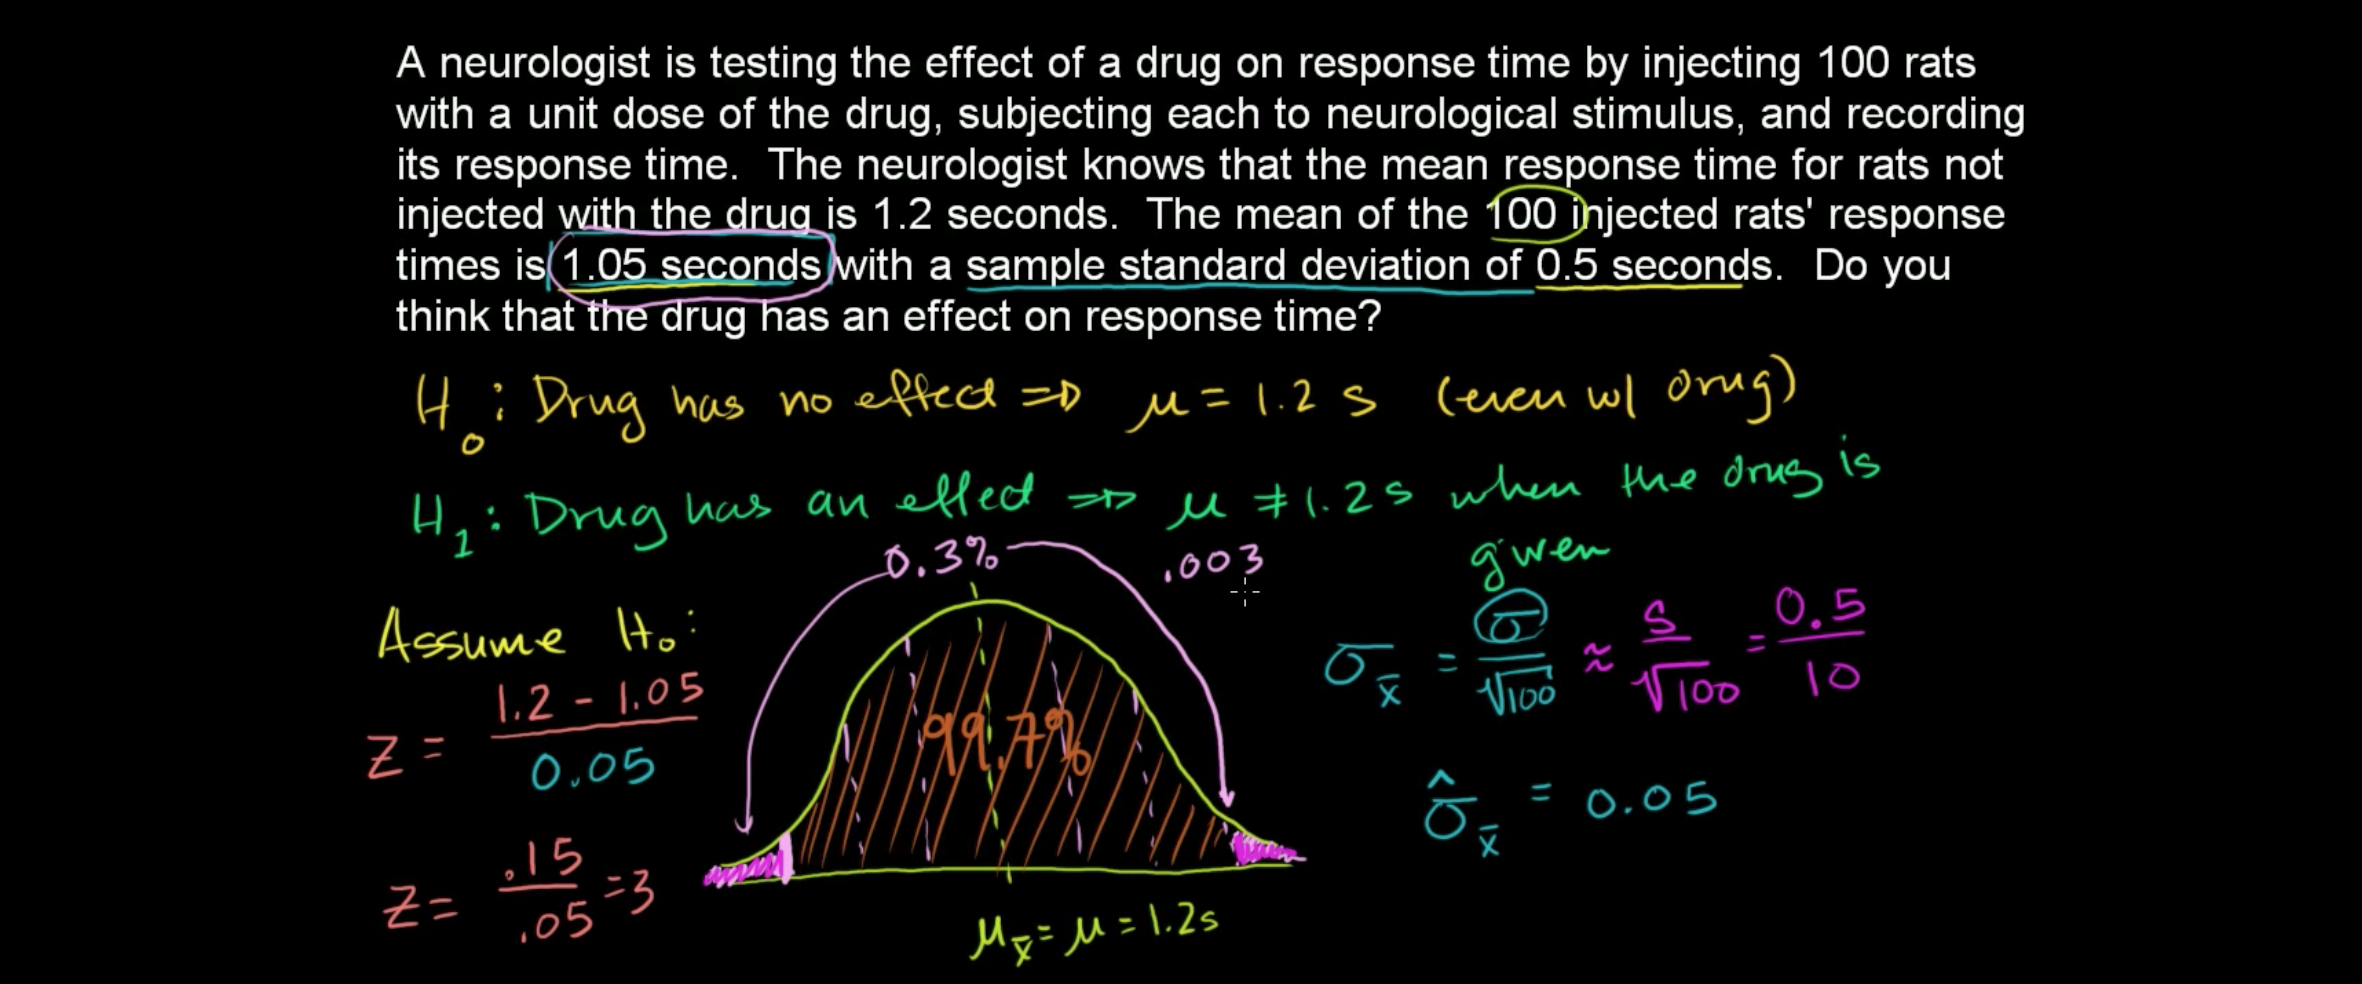 A neurologist is testing the effect of a drug on response time by injecting 100 rats
with a unit dose of the drug, subjecting each to neurological stimulus, and recording
its response time. The neurologist knows that the mean response time for rats not
injected with the drug is 1.2 seconds. The mean of the 100 injected rats' response
times is 1.05 seconds with a sample standard deviation of 0.5 seconds. Do you
think that the drug has an effect on response time?
H₀: Drug has no effect ⇒ μ = 1.2 s (even w/ drug)
H₁: Drug has an effect ⇒ μ ≠ 1.2 s when the drug is
given
0.3% .003
Assume H₀:
z = (1.2 - 1.05) / 0.05
z = .15 / .05 = 3
99.7%
μ_x̄ = μ = 1.2s
σ_x̄ = σ/√100 ≈ s/√100 = 0.5/10
σ̂_x̄ = 0.05